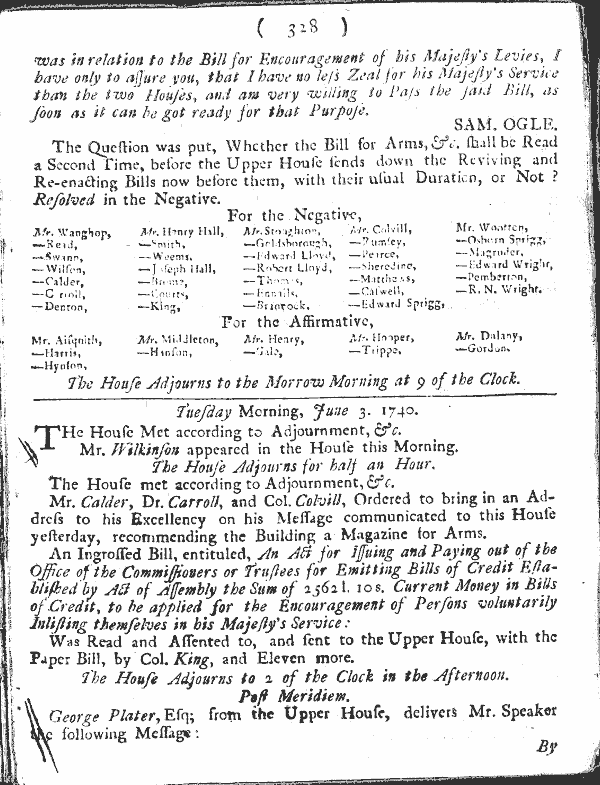 ( 328 )
was in relation to the Bill for Encouragement of his Majeſty's Levies, I
have only to aſſure you, that I have no leſs Zeal for his Majeſty's Service
than the two Houſes, and am very willing to Paſs the ſaid Bill, as
ſoon as it can be got ready for that Purpoſe.
SAM. OGLE.
The Queſtion was put, Whether the Bill for Arms, &c. ſhall be Read
a Second Time, before the Upper Houſe ſends down the Reviving and
Re-enacting Bills now before them, with their uſual Duration, or Not ?
Reſolved in the Negative.
For the Negative,
Mr. Wanghop, Mr. Henry Hall, Mr. Stoughton, Mr. Colvill, Mr. Wootten,
—Read, —Smith, —Goldsborough, —Rumſey, —Osborn Sprigg,
—Swann, —Weems, —Edward Lloyd, —Pearce, —Magruder,
—Wilſon, —Joſeph Hall, —Robert Lloyd, —Sheredine, —Edward Wright,
—Calder, —Broome, —Thomas, —Matthews, —Pemberton,
—Carroll, —Courts, —Ennalls, —Calwell, —R. N. Wright.
—Denton, —King, —Brannock, —Edward Sprigg,
For the Affirmative,
Mr. Aiſquith, Mr. Middleton, Mr. Henry, Mr. Hooper, Mr. Dulany,
—Harris, —Hanſon, —Gale, —Trippe, —Gordon.
—Hynſon,
The Houſe Adjourns to the Morrow Morning at 9 of the Clock.
Tueſday Morning, June 3. 1740.
THe Houſe Met according to Adjournment, &c.
Mr. Wilkinſon appeared in the Houſe this Morning.
The Houſe Adjourns for half an Hour.
The Houſe met according to Adjournment, &c.
Mr. Calder, Dr. Carroll, and Col. Colvill, Ordered to bring in an Ad-
dreſs to his Excellency on his Meſſage communicated to this Houſe
yeſterday, recommending the Building a Magazine for Arms.
An Ingroſſed Bill, entituled, An Act for iſſuing and Paying out of the
Office of the Commiſſioners or Truſtees for Emitting Bills of Credit Eſta-
bliſhed by Act of Aſſembly the Sum of 2562 l. 10s. Current Money in Bills
of Credit, to be applied for the Encouragement of Perſons voluntarily
Inliſting themſelves in his Majeſty's Service :
Was Read and Aſſented to, and ſent to the Upper Houſe, with the
Paper Bill, by Col. King, and Eleven more.
The Houſe Adjourns to 2 of the Clock in the Afternoon.
Poſt Meridiem.
George Plater, Eſq; from the Upper Houſe, delivers Mr. Speaker
the following Meſſage :
By